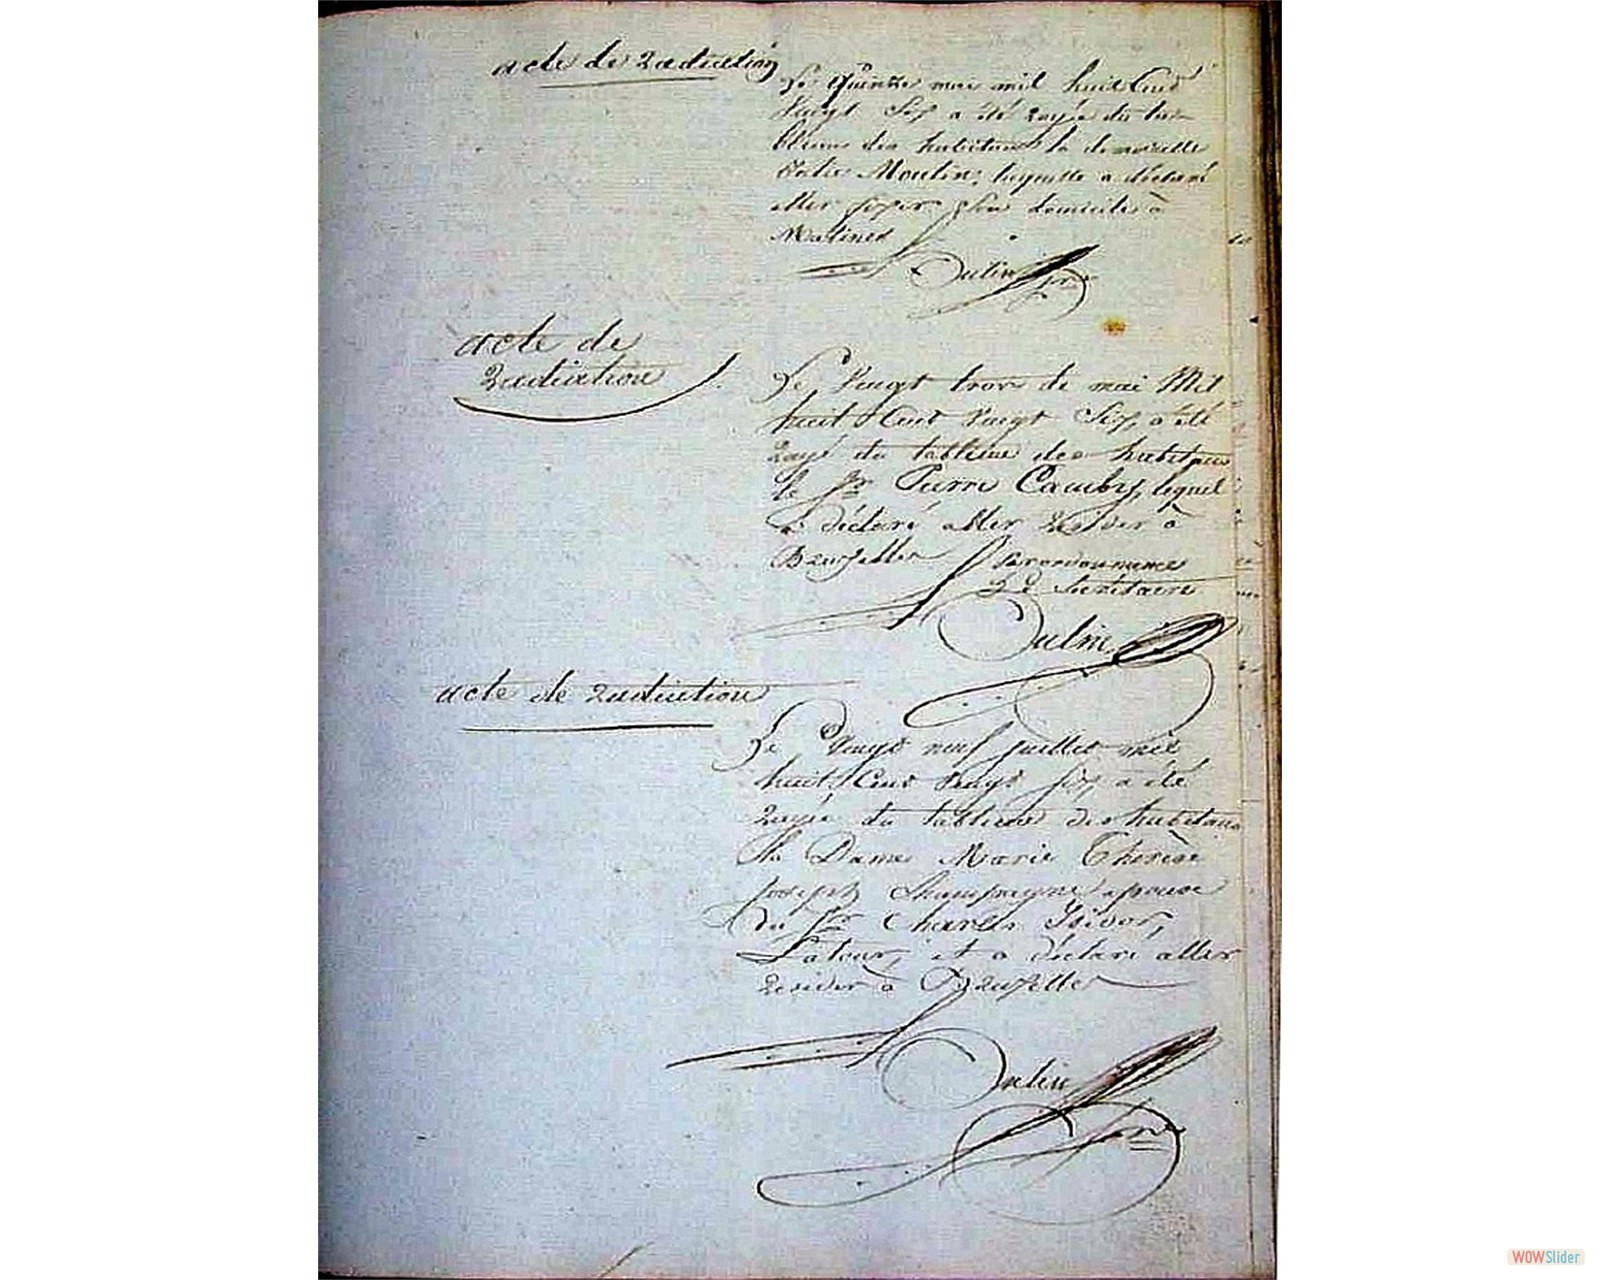 acte de radiation
Le quinze mai mil huit Cent
Vingt Six a été rayée du ta-
bleau des habitans la demoiselle
Moulin, laquelle a déclaré
aller fixer son domicile à
Malines
Dulin
acte de
radiation
Le Vingt trois de mai Mil
huit Cent Vingt Six, a été
rayé du tableau des habitans
le Sr Pierre Camby, lequel
a déclaré aller résider à
Bruxelles Par ordonnance
Le Secrétaire
Dulin
acte de radiation
Le Vingt neuf juillet mil
huit Cent Vingt Six, a été
rayée du tableau des habitans
la Dame Marie Thérèse
Joseph Champagne, épouse
du Sr Charles Isidor,
Latour, et a déclaré aller
résider à Bruxelles
Dulin
WOWSlider